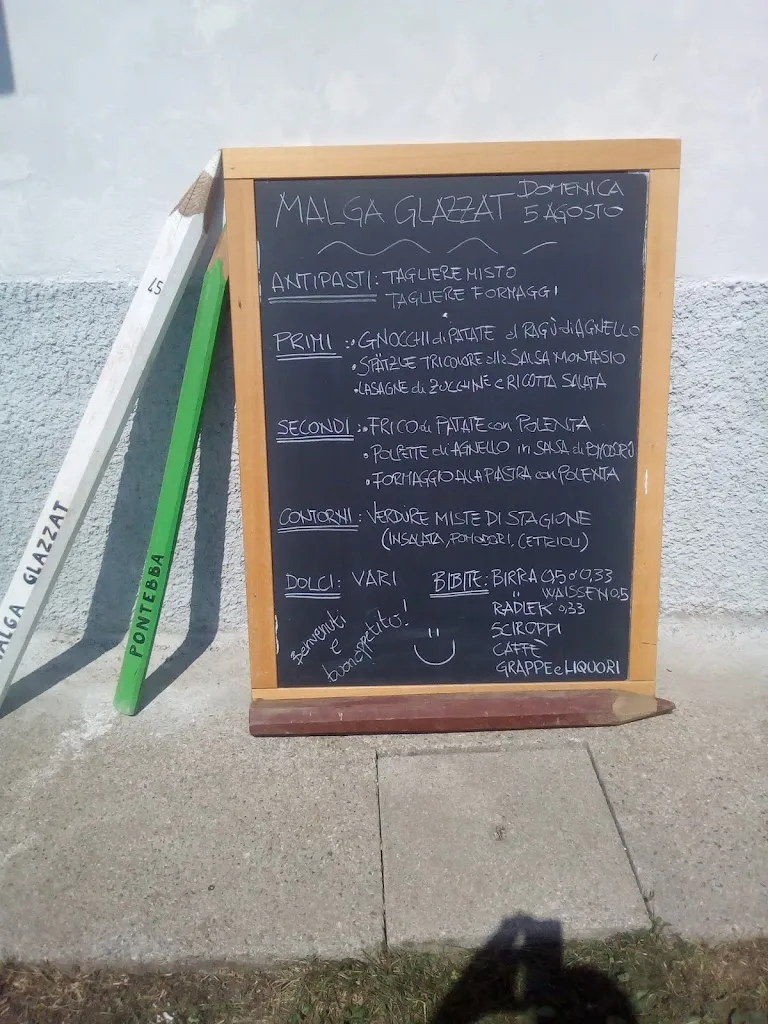 MALGA GLAZZAT DOMENICA
5 AGOSTO
ANTIPASTI: TAGLIERE MISTO
TAGLIERE FORMAGGI
PRIMI :• GNOCCHI di PATATE al RAGÙ di AGNELLO
• SPÄTZLE TRICOLORE alla SALSA MONTASIO
• LASAGNE di ZUCCHINE e RICOTTA SALATA
SECONDI :• FRICO di PATATE con POLENTA
• POLPETTE di AGNELLO in SALSA di POMODORO
• FORMAGGIO ALLA PIASTRA con POLENTA
CONTORNI: VERDURE MISTE DI STAGIONE
(INSALATA, POMODORI, CETRIOLI)
DOLCI: VARI
BIBITE: BIRRA 0,5 o 0,33
" WAISSEN 0,5
RADLER 0,33
SCIROPPI
CAFFÈ
GRAPPE e LIQUORI
Benvenuti
e
buonappetito!
45
MALGA GLAZZAT
PONTEBBA